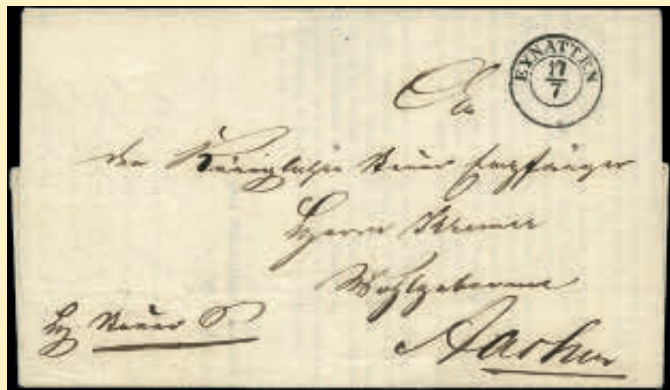 EYNATTEN
17
7
An
den Königlichen Steuer Empfänger
Herrn Kremer
Wohlgeboren
Steuer S.
Aachen